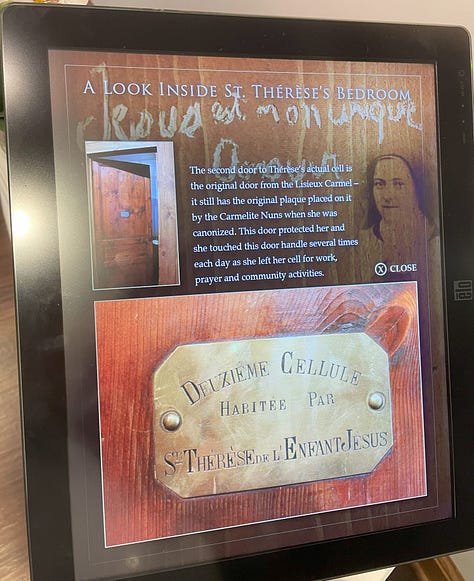 A LOOK INSIDE ST. THÉRÈSE'S BEDROOM
Jesus est mon unique
Amour
The second door to Thérèse's actual cell is
the original door from the Lisieux Carmel –
it still has the original plaque placed on it
by the Carmelite Nuns when she was
canonized. This door protected her and
she touched this door handle several times
each day as she left her cell for work,
prayer and community activities.
X CLOSE
DEUXIÈME CELLULE
HABITÉE PAR
STE THERÈSE DE L'ENFANT JESUS
elo